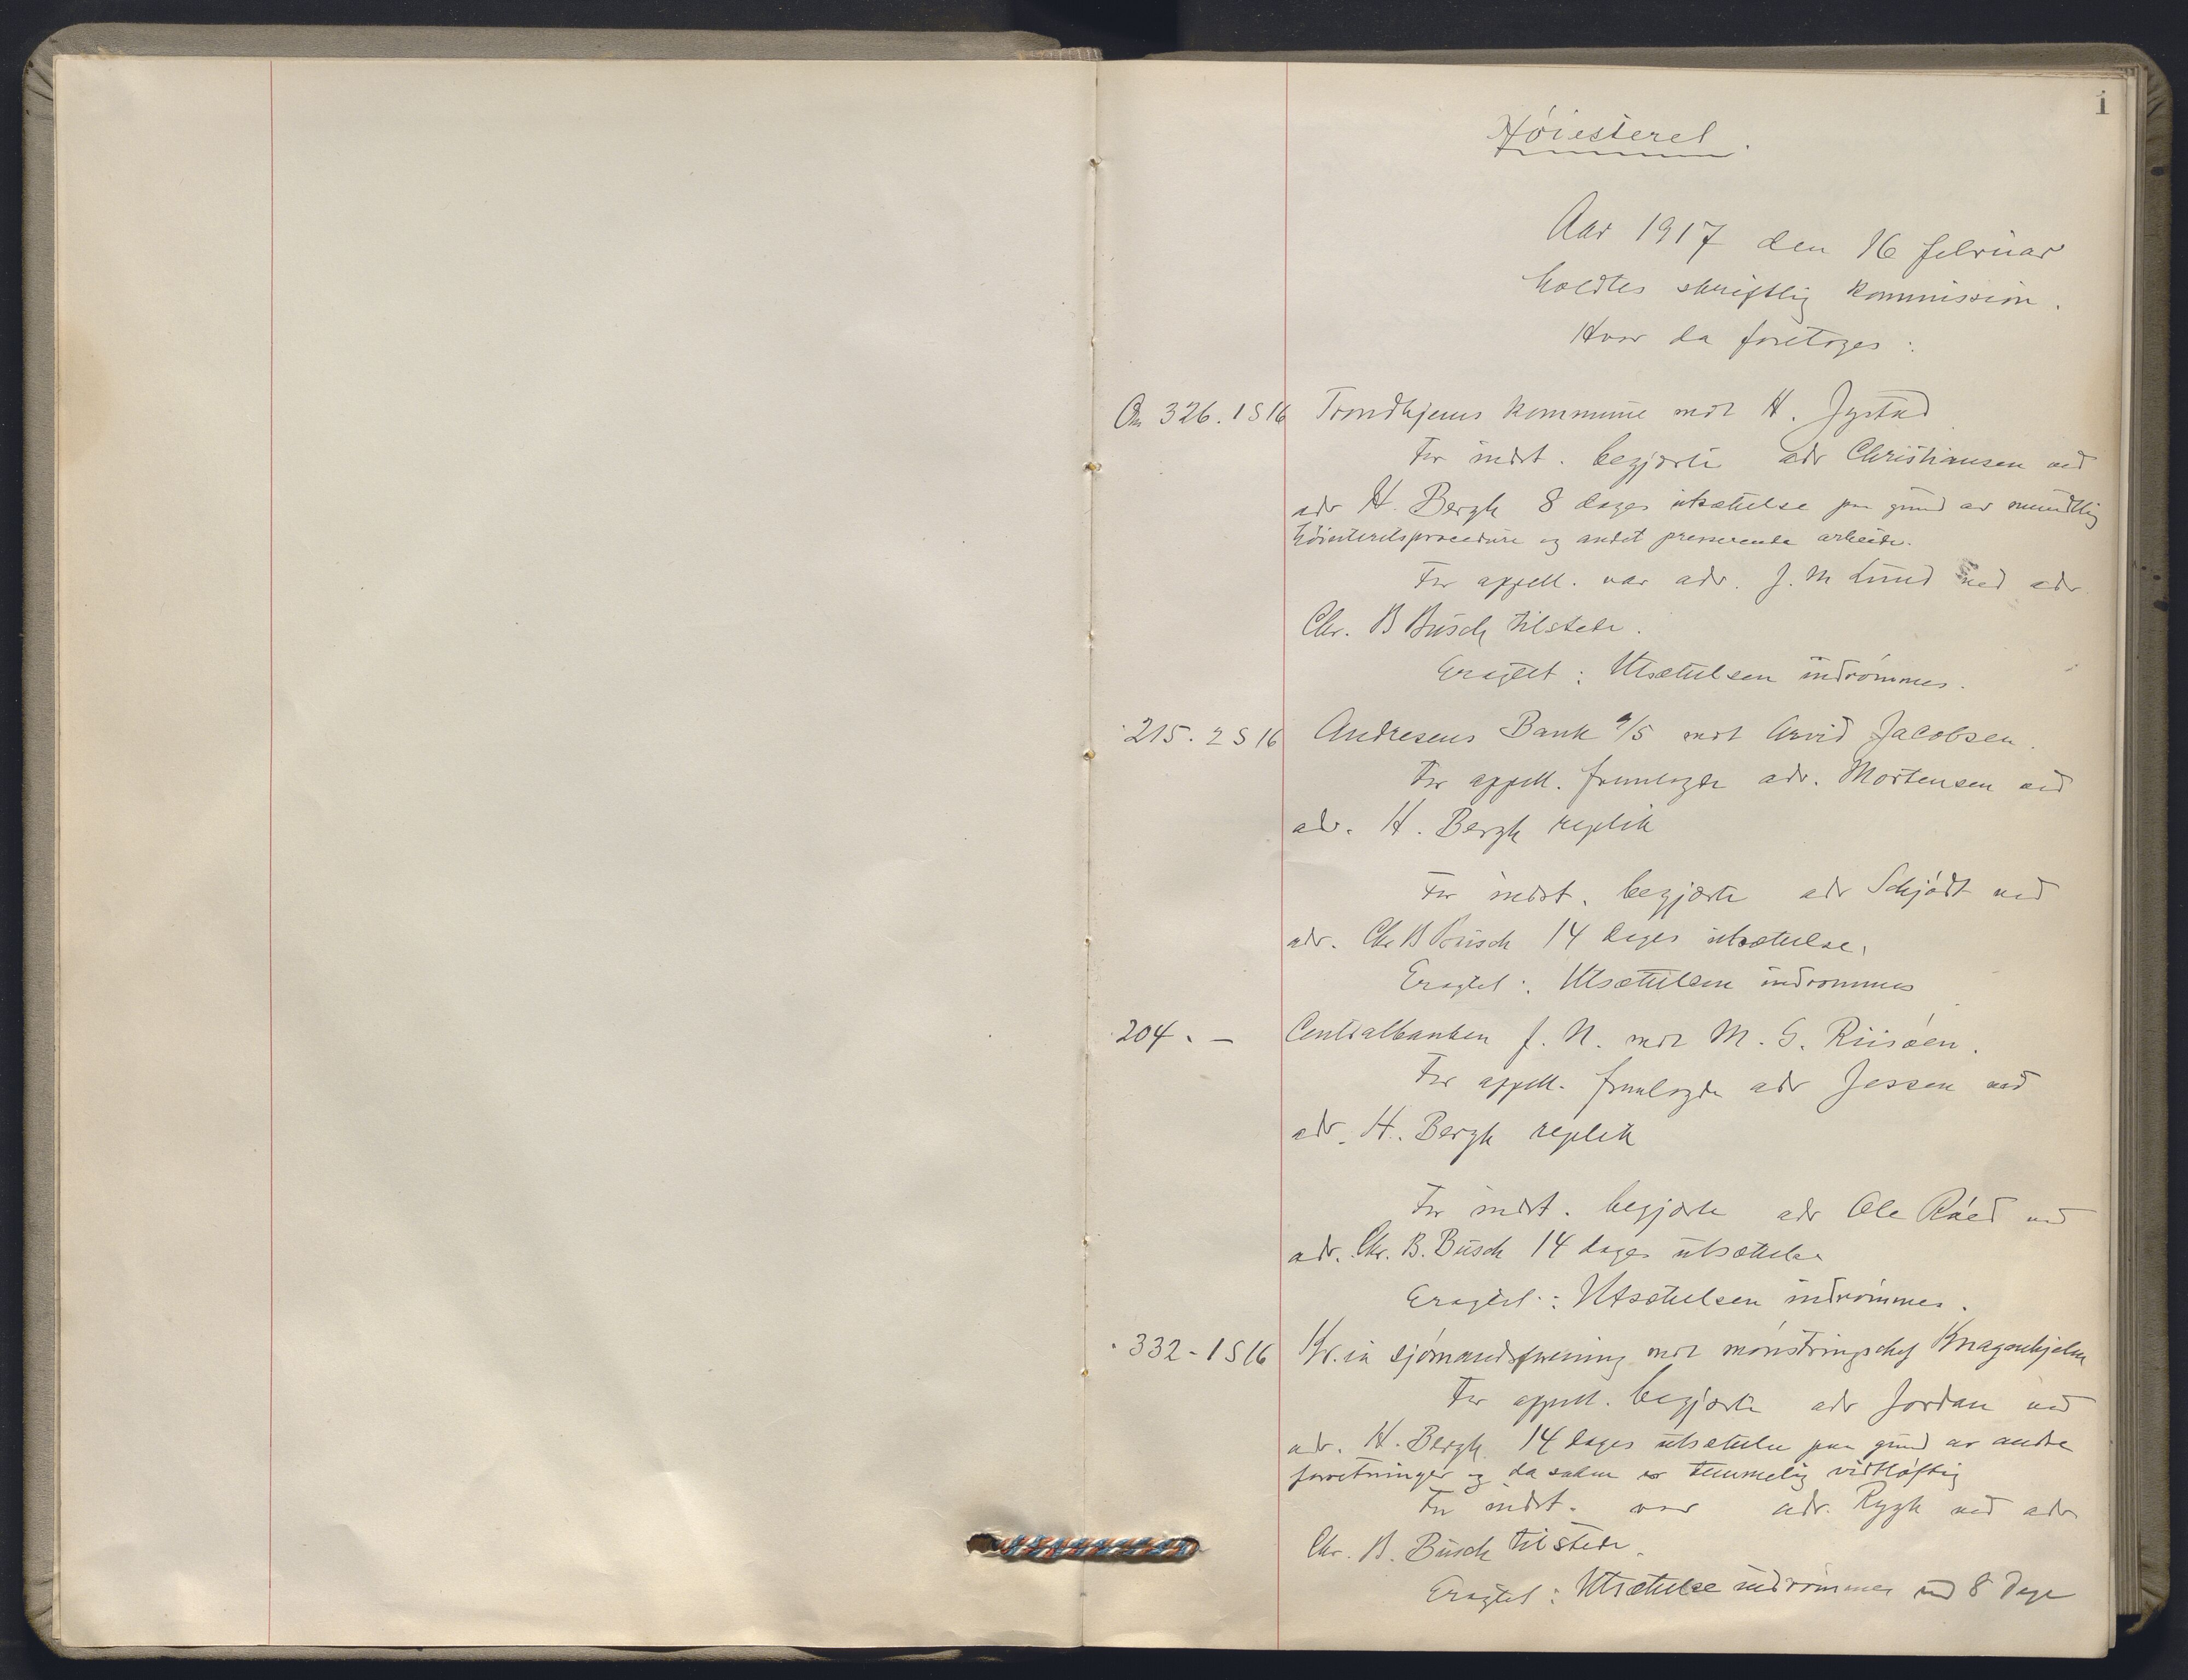 1
Høiesteret.
Aar 1917 den 16 februar
holdtes skriftlig kommission.
Hvor da foretoges:
326. 1 S 16 Trondhjems kommune mot H. Jystad
For indst. begjærte adv Christiansen ved
adv H. Bergh 8 dages utsættelse paa grund av mundtlig
høiesteretsprocedure og andet presserende arbeide.
For appell. var adv. J. M Lund ved adv
Chr. B Busch tilstede.
Eragtet: Utsættelsen indrømmes.
215. 2 S 16 Andresens Bank A/S mot Arvid Jacobsen.
For appell. fremlagde adv. Mortensen ved
adv. H. Bergh replik
For indst. begjærte adv Schjødt ved
adv. Chr B Busch 14 dages utsættelse.
Eragtet: Utsættelsen indrømmes
204. — Centralbanken f. N. mot M. G. Riisøen.
For appell. fremlagde adv Jessen ved
adv. H. Bergh replik
For indst. begjærte adv Ole Røed ved
adv. Chr. B. Busch 14 dages utsættelse
Eragtet: Utsættelsen indrømmes.
332 - 1 S 16 Kr.ia sjømandsforening mot mønstringschef Knagenhjelm
For appell. begjærte adv Jordan ved
adv. H. Bergh 14 dages utsættelse paa grund av andre
forretninger og da saken er temmelig vidtløftig
For indst. var adv. Rygh ved adv
Chr. B. Busch tilstede.
Eragtet: Utsættelse indrømmes med 8 Dage